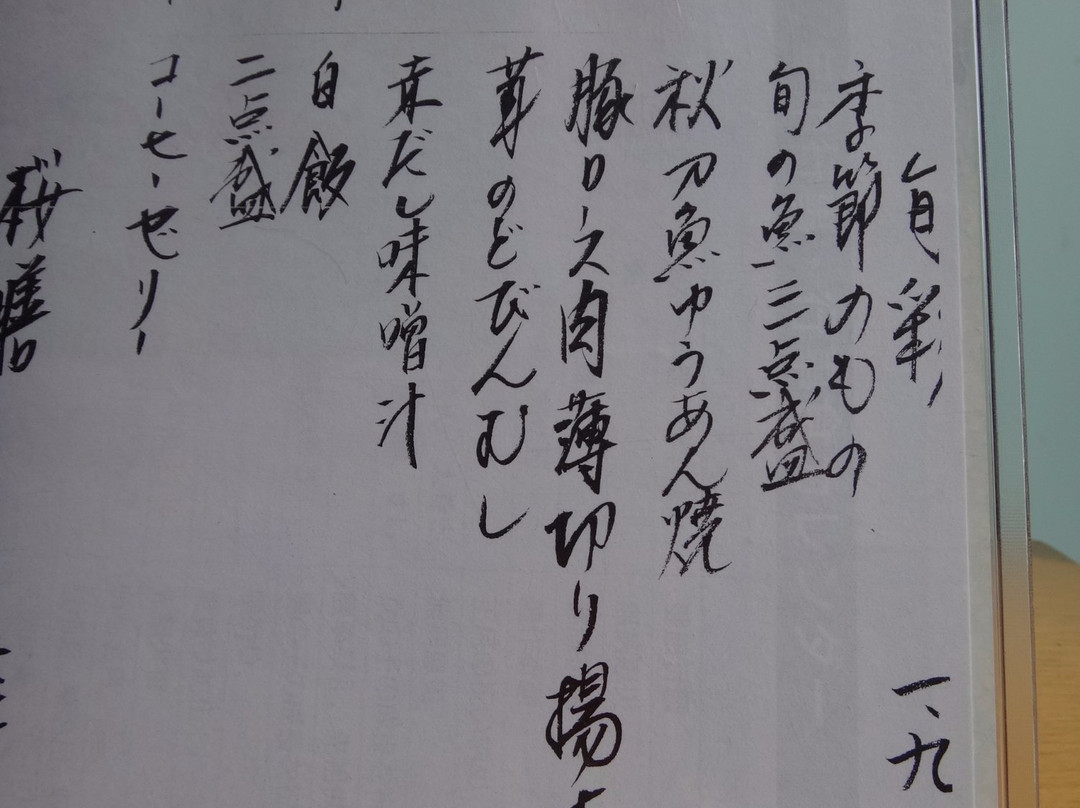 旬彩 一、九
季節のもの
旬の魚三点盛
秋刀魚ゆうあん焼
豚ロース肉薄切り揚
茸のどびんむし
赤だし味噌汁
白飯
二点盛
コーヒーゼリー
桜膳